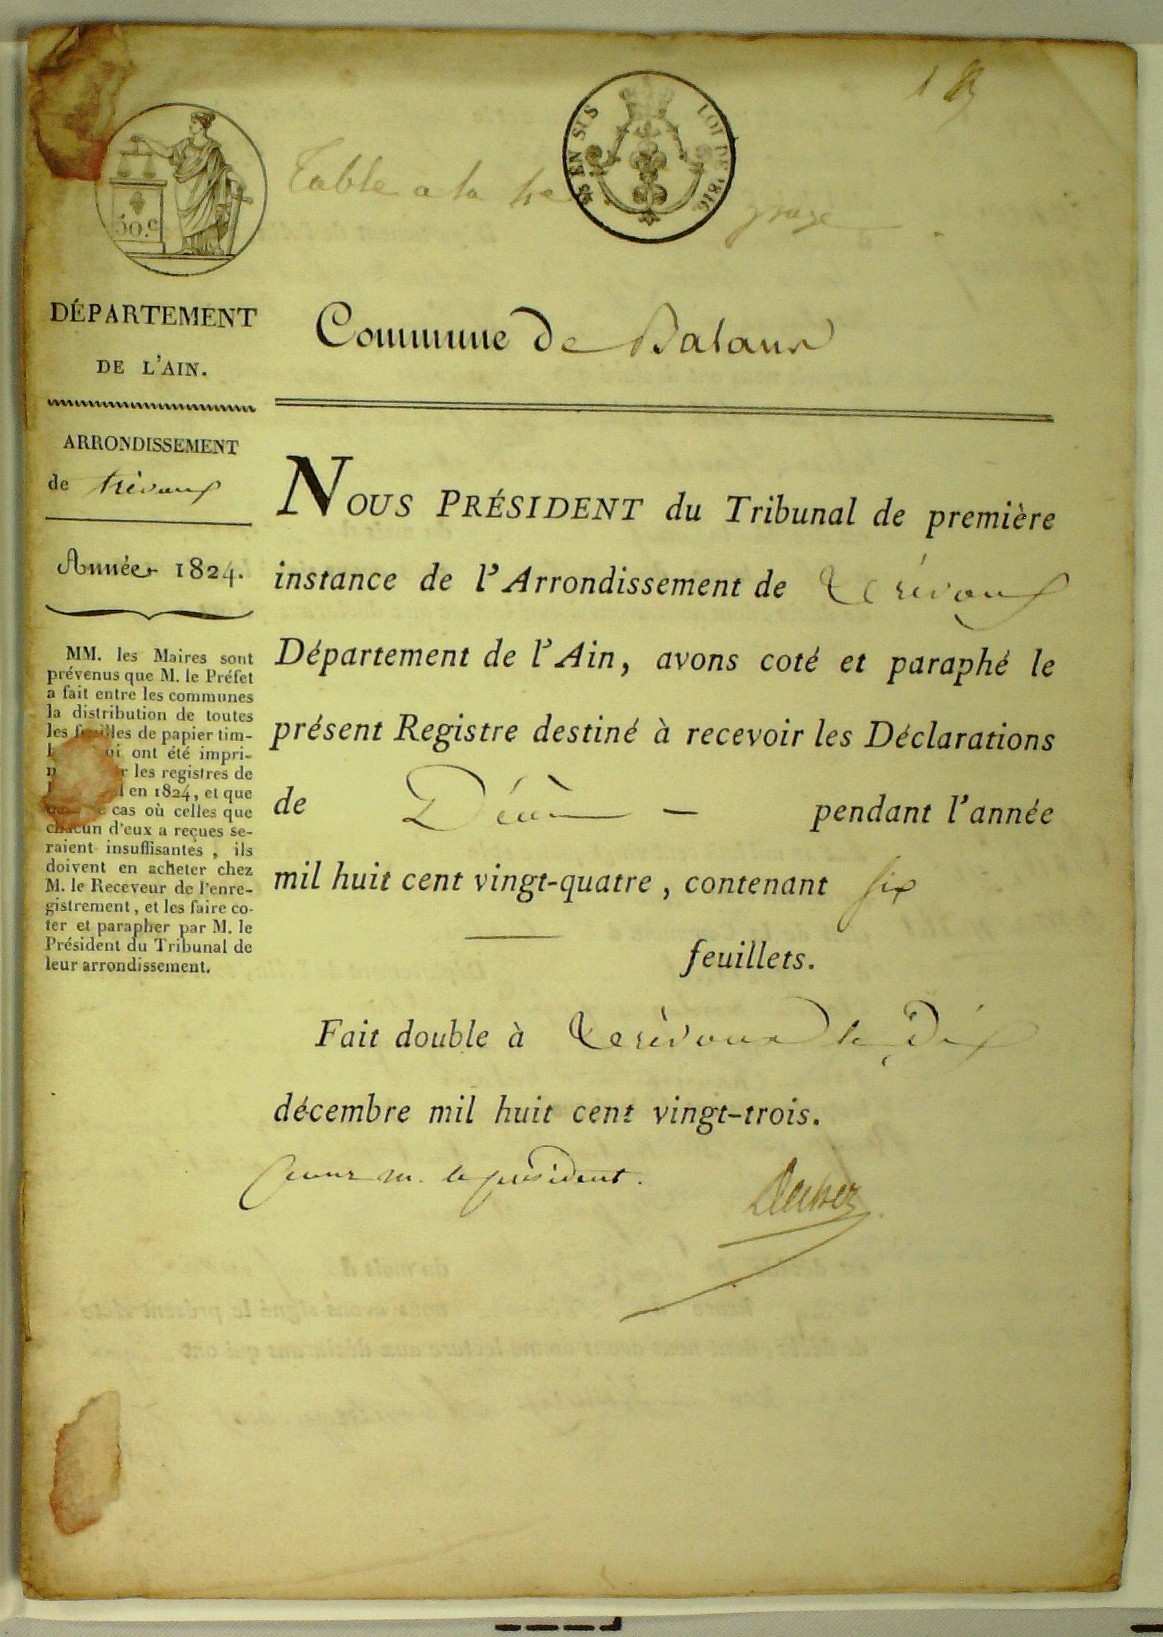 1
50.c
EN SUS
LOI DE 1816
Table a la page
DÉPARTEMENT
DE L'AIN.
Commune de Balans
ARRONDISSEMENT
de trévoux
Année 1824.
MM. les Maires sont
prévenus que M. le Préfet
a fait entre les communes
la distribution de toutes
les feuilles de papier tim-
ont été impri-
les registres de
en 1824, et que
cas où celles que
chacun d'eux a reçues se-
raient insuffisantes, ils
doivent en acheter chez
M. le Receveur de l'enre-
gistrement, et les faire co-
ter et parapher par M. le
Président du Tribunal de
leur arrondissement.
NOUS PRÉSIDENT du Tribunal de première
instance de l'Arrondissement de trévoux
Département de l'Ain, avons coté et paraphé le
présent Registre destiné à recevoir les Déclarations
de Décès — pendant l'année
mil huit cent vingt-quatre, contenant six
feuillets.
Fait double à trévoux le dix
décembre mil huit cent vingt-trois.
pour m. le président.